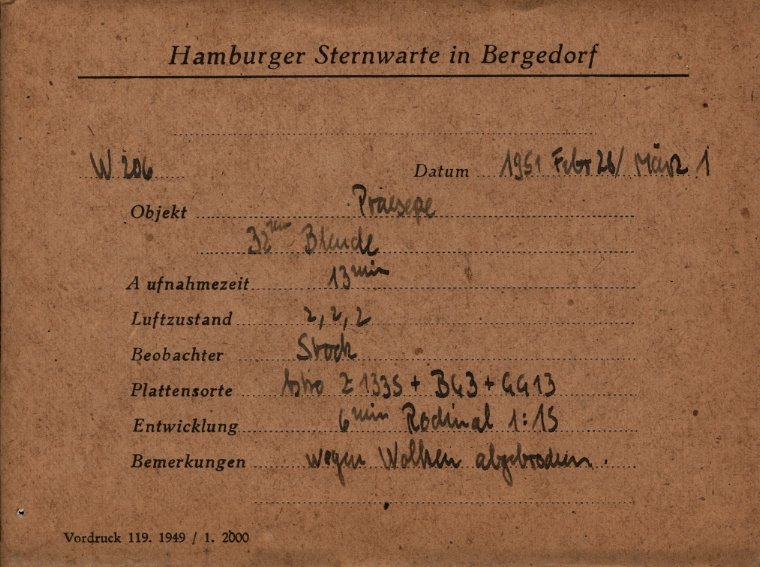 Hamburger Sternwarte in Bergedorf
W 206 Datum 1951 Febr 28/ März 1
Objekt Praesepe
32 cm Blende
Aufnahmezeit 13 min
Luftzustand 2, 2, 2
Beobachter Stock
Plattensorte Astro Z 1335 + BG3 + GG13
Entwicklung 6 min Rodinal 1:15
Bemerkungen wegen Wolken abgebrochen.
Vordruck 119. 1949 / 1. 2000